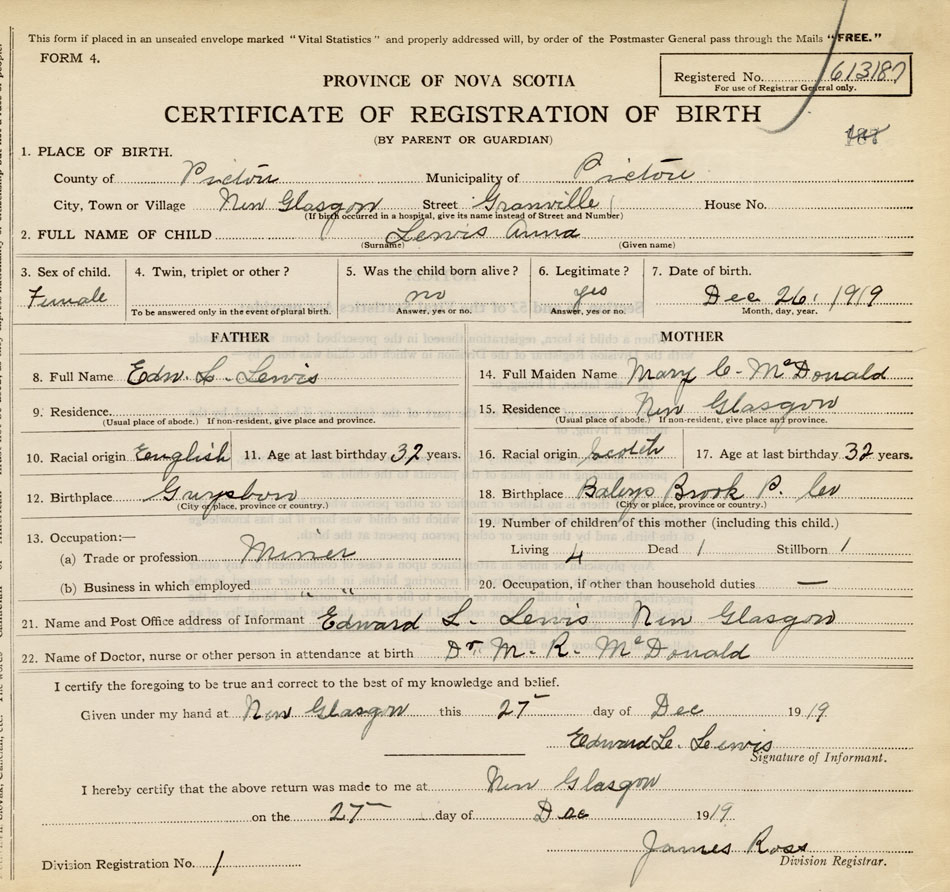 This form if placed in an unsealed envelope marked "Vital Statistics" and properly addressed will, by order of the Postmaster General pass through the Mails "FREE."
FORM 4.
PROVINCE OF NOVA SCOTIA
Registered No. 613187
For use of Registrar General only.
CERTIFICATE OF REGISTRATION OF BIRTH
(BY PARENT OR GUARDIAN)
1. PLACE OF BIRTH.
County of Pictou Municipality of Pictou
City, Town or Village New Glasgow Street Granville House No.
(If birth occurred in a hospital, give its name instead of Street and Number)
2. FULL NAME OF CHILD Lewis Anna
(Surname) (Given name)
3. Sex of child. 4. Twin, triplet or other? 5. Was the child born alive? 6. Legitimate? 7. Date of birth.
Female no yes Dec 26, 1919
To be answered only in the event of plural birth. Answer, yes or no. Answer, yes or no. Month, day, year.
FATHER MOTHER
8. Full Name Edw. L. Lewis
14. Full Maiden Name Mary C. McDonald
9. Residence.
(Usual place of abode.) If non-resident, give place and province.
15. Residence New Glasgow
(Usual place of abode.) If non-resident, give place and province.
10. Racial origin English 11. Age at last birthday 32 years.
16. Racial origin Scotch 17. Age at last birthday 32 years.
12. Birthplace Guysboro
(City or place, province or country.)
18. Birthplace Brook P. Co
(City or place, province or country.)
13. Occupation:—
(a) Trade or profession Miner
(b) Business in which employed " "
19. Number of children of this mother (including this child.)
Living 4 Dead 1 Stillborn 1
20. Occupation, if other than household duties —
21. Name and Post Office address of Informant Edward L. Lewis New Glasgow
22. Name of Doctor, nurse or other person in attendance at birth Dr. M. R. McDonald
I certify the foregoing to be true and correct to the best of my knowledge and belief.
Given under my hand at New Glasgow this 27 day of Dec 1919
Edward L. Lewis
Signature of Informant.
I hereby certify that the above return was made to me at New Glasgow
on the 27 day of Dec 1919
James Ross
Division Registration No. 1 Division Registrar.